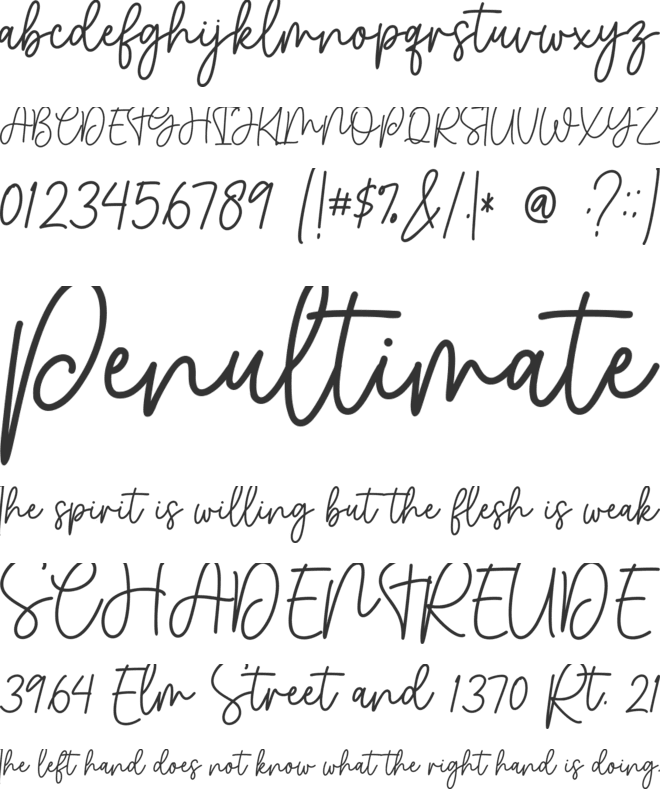 abcdefghijklmnopqrstuvwxyz
ABCDEFGHIJKLMNOPQRSTUVWXYZ
0123456789 (!#$%&/.|* @ ·?::)
Penultimate
The spirit is willing but the flesh is weak
SCHADENFREUDE
3964 Elm Street and 1370 Rt. 21
The left hand does not know what the right hand is doing.